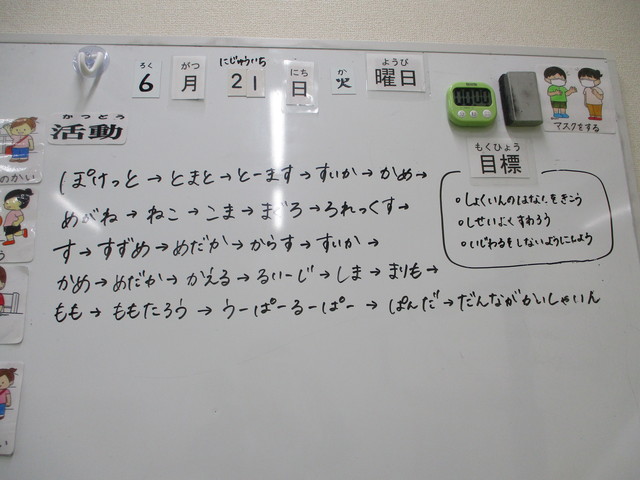 ろく がつ にじゅういち にち か ようび
6 月 21 日 火 曜日
かつどう
活動
00:00
マスクをする
もくひょう
目標
ぽけっと→とまと→とーます→すいか→かめ→
めがね→ねこ→こま→まぐろ→ろれっくす→
す→すずめ→めだか→からす→すいか→
かめ→めだか→かえる→るいーじ→しま→まりも→
もも→ももたろう→うーぱーるーぱー→ぱんだ→だんながかいしゃいん
・しょくいんのはなしをきこう
・しせいよくすわろう
・いじわるをしないようにしよう
のかい